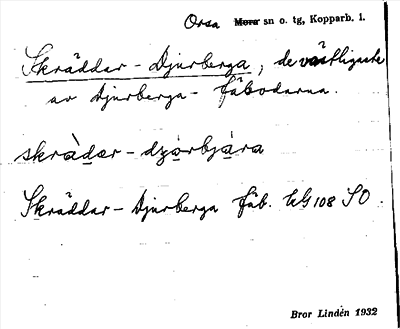 Orsa Mora sn o. tg, Kopparb. l.
Skräddar-Djurberga, de västligaste
av Djurberga-fäbodarna.
skràdar-dzårbjära
Skräddar-Djurberga fäb. UG 108 SO.
Bror Lindén 1932